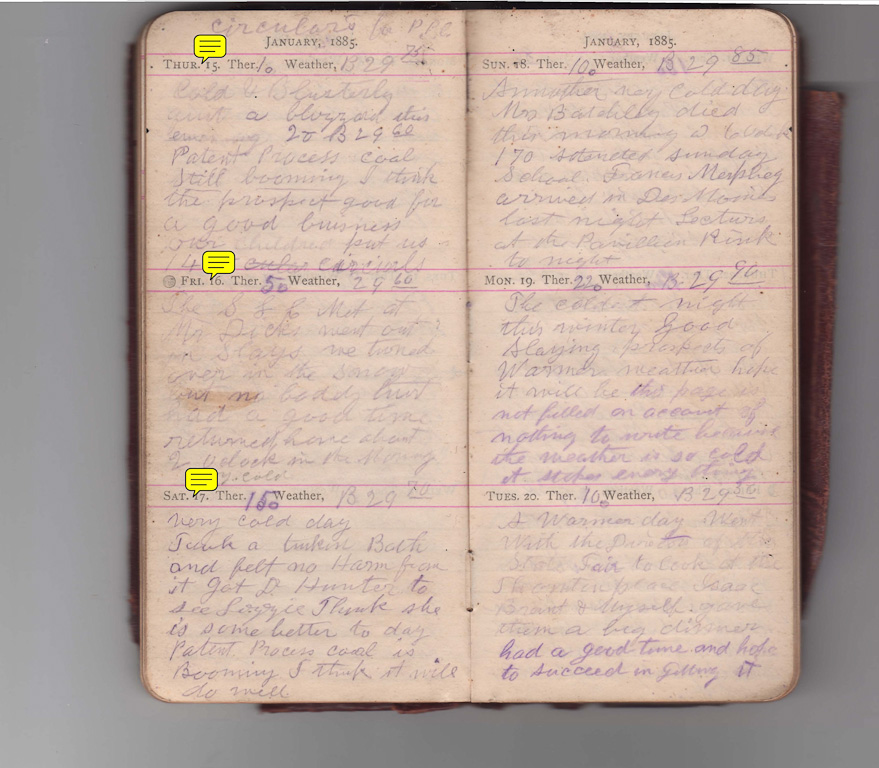 circulars to P.P.C
JANUARY, 1885.
THUR. 15. Ther. 10 Weather, B 29 75
Cold & Blusterly
quite a blizzard this
evening 20 B 29 60
Patent Process coal
Still booming I think
the prospect good for
a good buisness
our children put us
circulars
FRI. 16. Ther. 50 Weather, 29 60
The S & C Met at
Mr Dicks went out
in Slays we turned
over in the snow
but no body hurt
had a good time
returned home about
2 oclock in the Morning
cold
SAT. 17. Ther. 150 Weather, B 29 70
Very cold day
Took a turkin Bath
and felt no Harm from
it got Dr Hunter to
see Lizzie Think she
is some better to day
Patent Process coal is
Booming I think it will
do well
JANUARY, 1885.
SUN. 18. Ther. 10o Weather, B 29 85
Annother very cold day
Mrs died
this morning
170 attended sunday
School. Francis Murphey
arrived in Des Moines
last night Lecturs
at the Pavillion Rink
to night
MON. 19. Ther. 220 Weather, B 29 90
The coldest night
this winter Good
Slaying prospects of
Warmer weather hope
it will be this page is
not filled on account of
nothing to write because
the weather is so cold
it stops every thing
TUES. 20. Ther. 10o Weather, B 29 50
A Warmer day Went
With the Directors of the
State Fair to look at the
Isaac
Brant & Myself gave
them a big dinner
had a good time and hope
to succeed in getting it